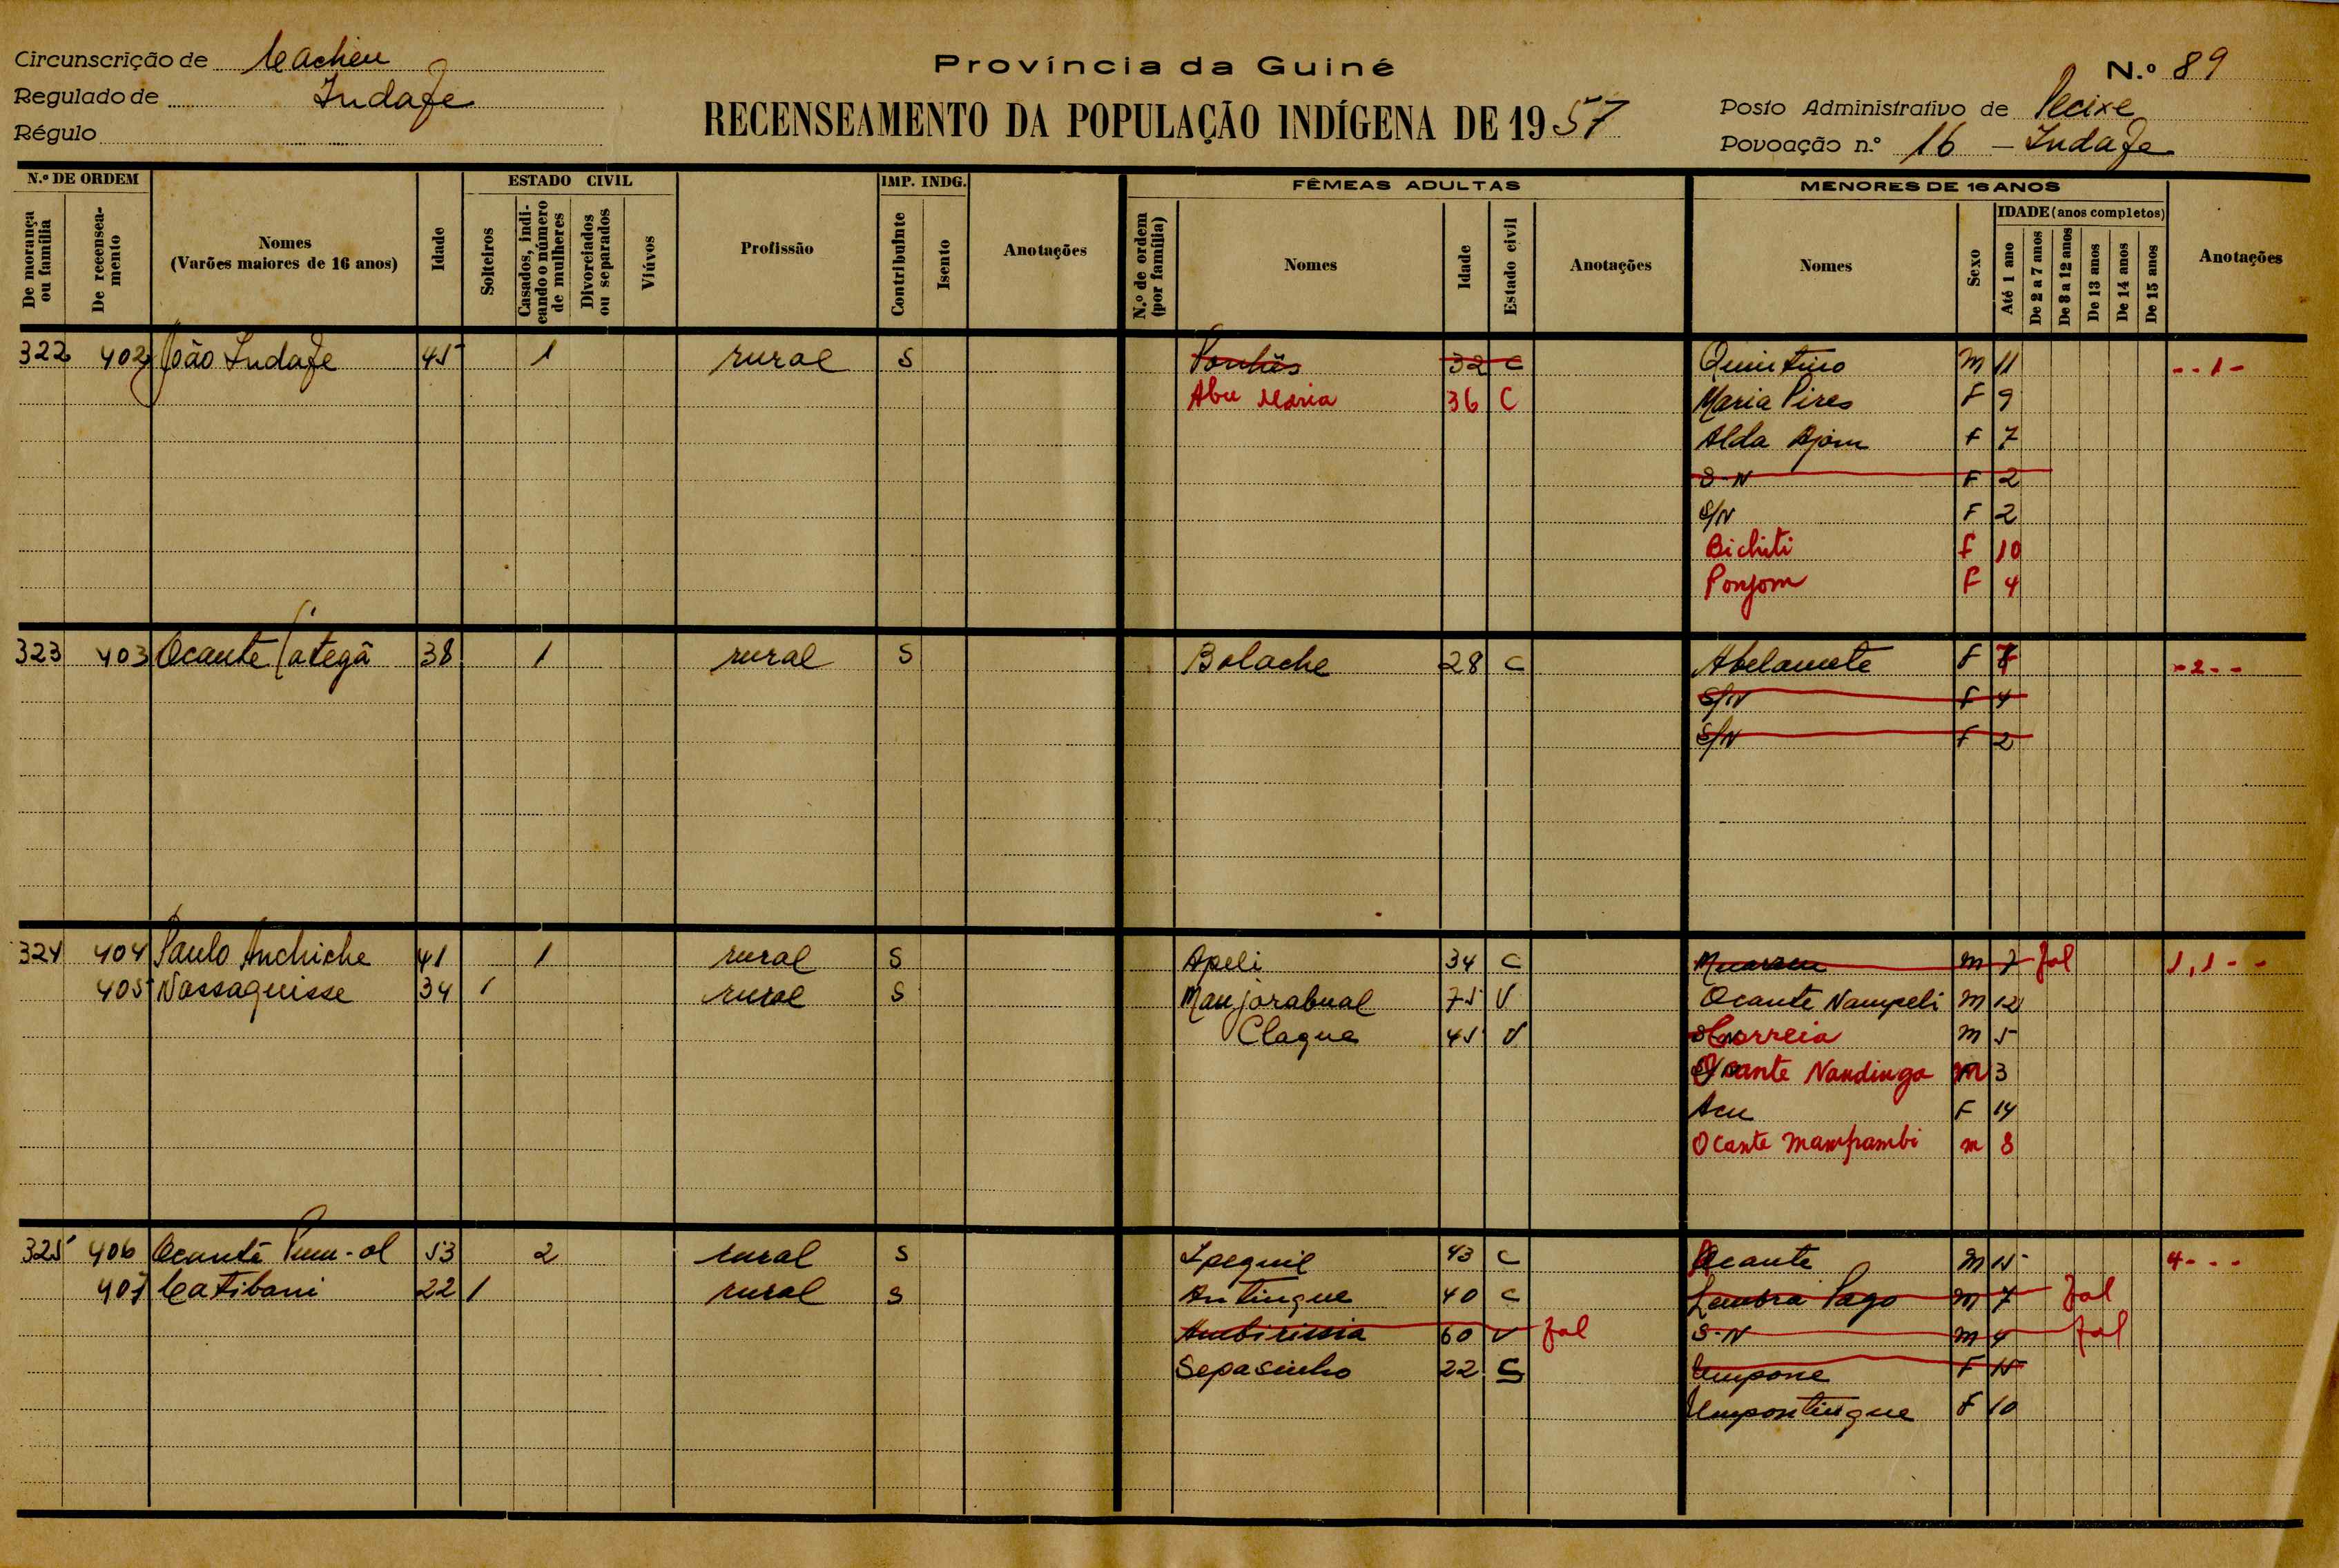 Circunscrição de Cacheu
Regulado de Indafe
Régulo
Província da Guiné
RECENSEAMENTO DA POPULAÇÃO INDÍGENA DE 1957
N.º 89
Posto Administrativo de Pecixe
Povoação n.º 16 – Indafe
N.º DE ORDEM
De morança ou família
De recensea-mento
Nomes
(Varões maiores de 16 anos)
Idade
ESTADO CIVIL
Solteiros
Casados, indi-cando o número de mulheres
Divorciados ou separados
Viúvos
Profissão
IMP. INDG.
Contribuinte
Isento
Anotações
FÊMEAS ADULTAS
N.º de ordem (por família)
Nomes
Idade
Estado civil
Anotações
MENORES DE 16 ANOS
Nomes
Sexo
IDADE (anos completos)
Até 1 ano
De 2 a 7 anos
De 8 a 12 anos
De 13 anos
De 14 anos
De 15 anos
Anotações
322 402 João Indafe 45 1 rural S 32 C Quintino M 11 - - 1 -
Abu Maria 36 C Maria Pires F 9
Alda Djom F 7
S-N F 2
S/N F 2
Bichiti F 10
Ponjom F 4
323 403 Ocante Categã 38 1 rural S Bolache 28 C Abelamete F 7 - 2 - -
S/N F 4
S/N F 2
324 404 Paulo Anchiche 41 1 rural S Apeli 34 C M 7 fal 1,1 - -
405 Nassaquisse 34 1 rural S Manjarabual 75 V Ocante Nampeli M 12
Claque 45 V Correia M 5
Ocante Nandinga M 3
Acu F 14
Ocante Mampambi m 8
325 406 Ocante Pum-ol 53 2 rural S Ipequil 43 C Ocante M 15 4 - - -
407 Catibani 22 1 rural S Antinque 40 C Lambra Pago M 7 fal
Ambirissia 60 V fal S-N M 4 fal
Sepasinho 22 C Umpone F 15
Umpontingue F 10